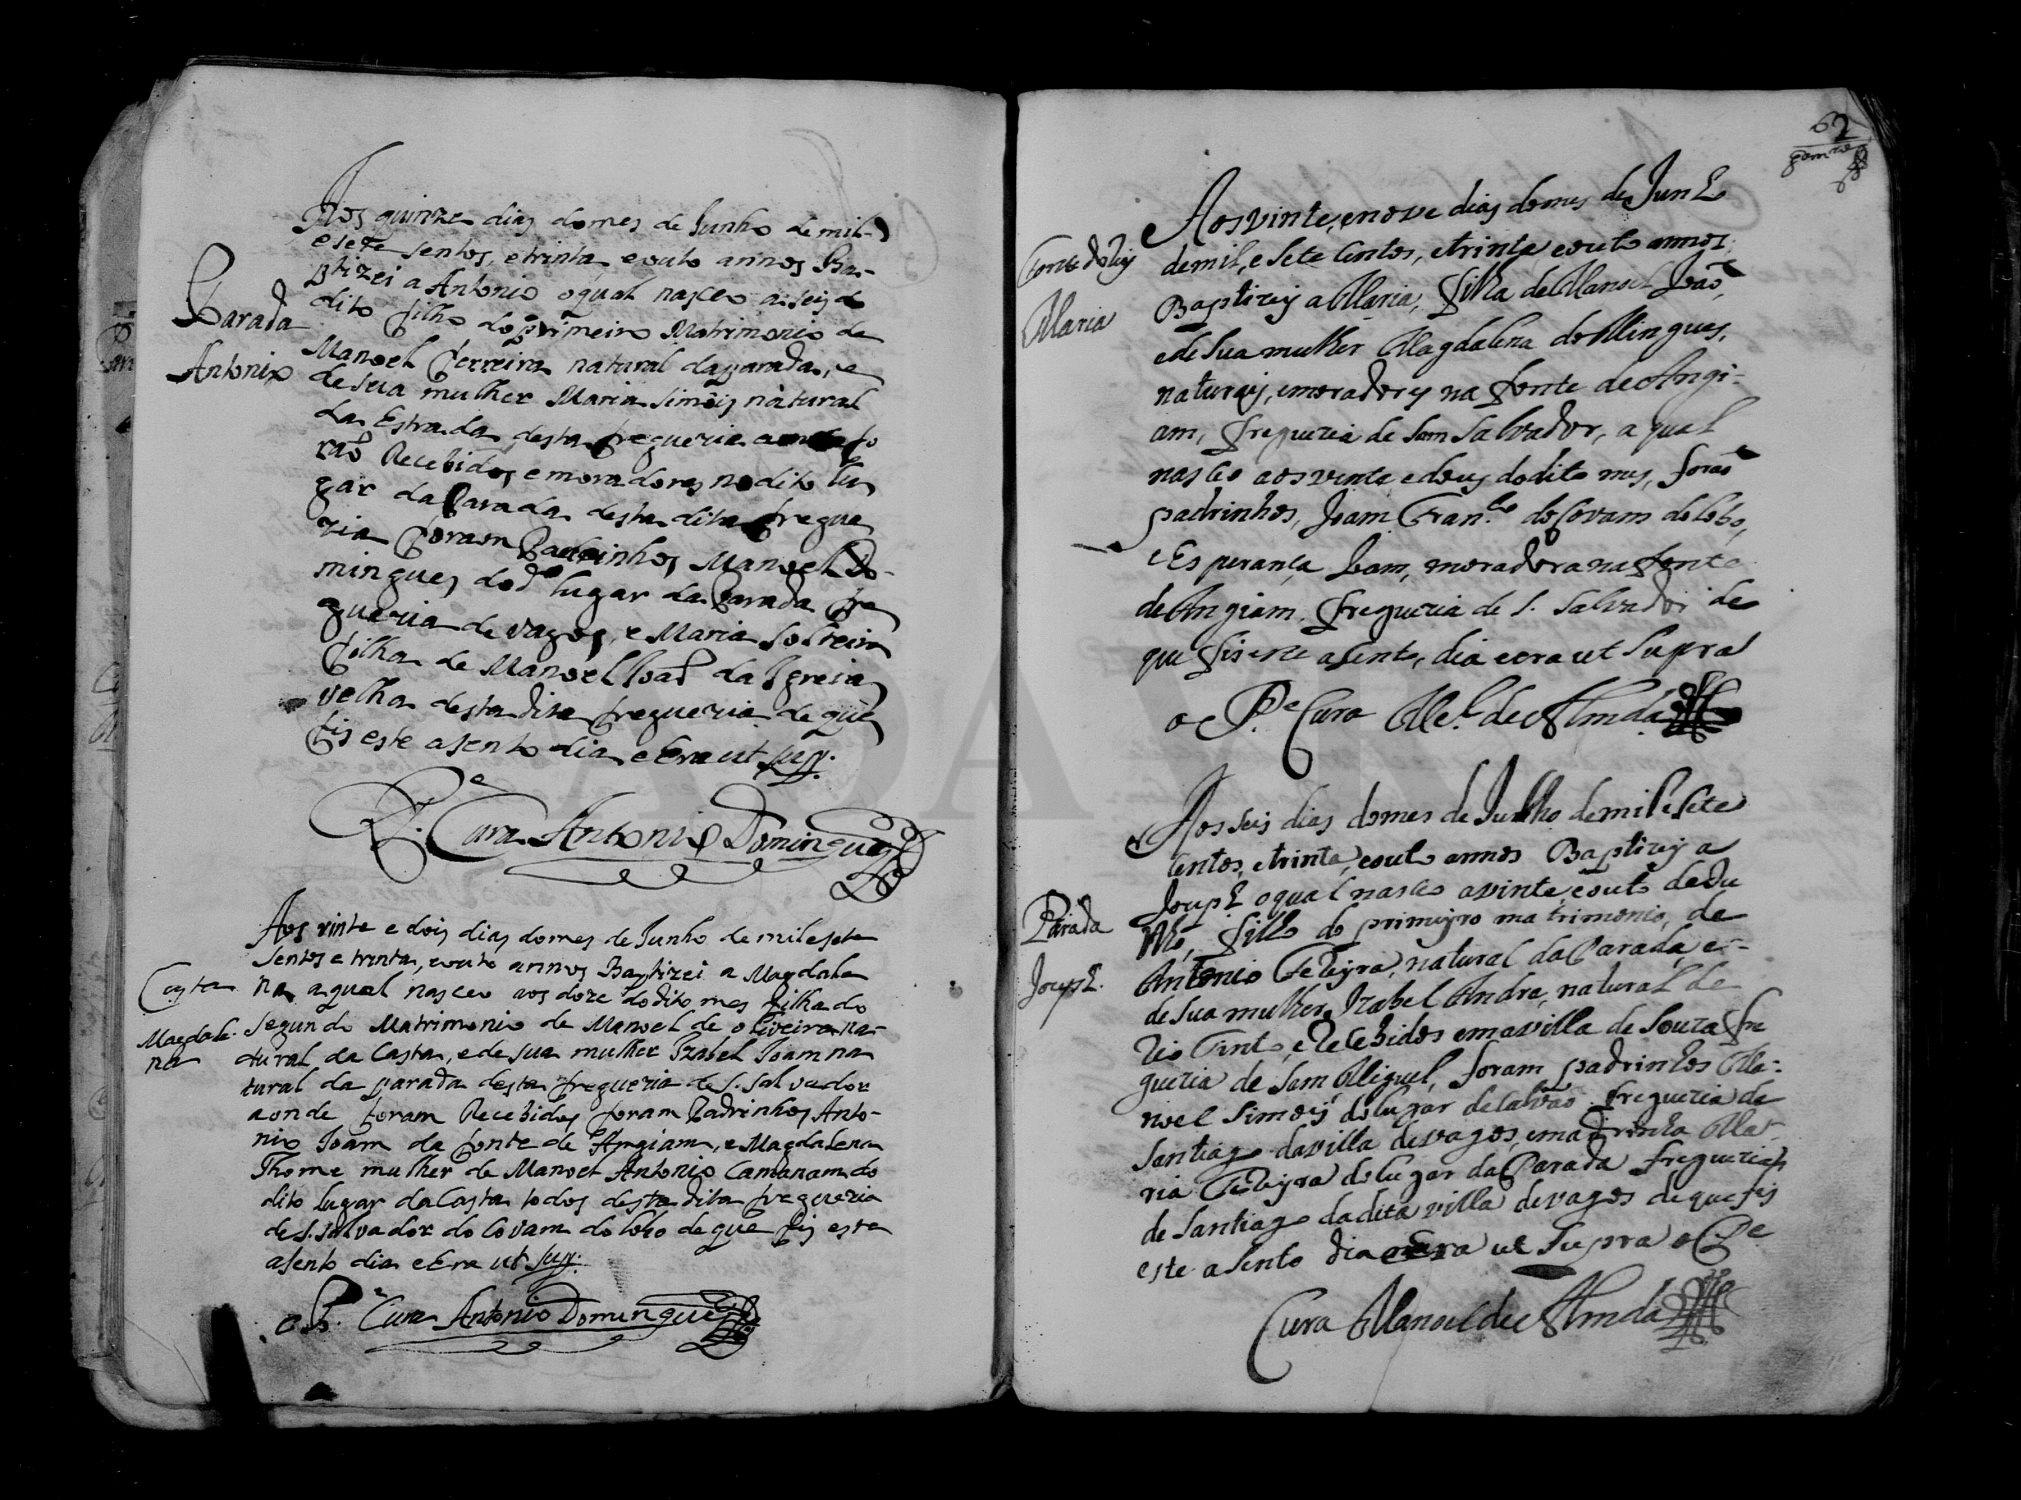 Parada
Antonio
Aos quinze dias do mes de Junho de mil
e sete sentos, e trinta e outo annos Ba-
ptizei a Antonio o qual nasceo a seis do
dito filho do primeiro Matrimonio de
Manoel Ferreira natural da parada, e
de sua mulher Maria Simois natural
da Estrada desta fregueria fo
raõ Recebidos e moradores no dito lu
gar da Parada desta dita fregue
ria foram Padrinhos Manoel Do-
mingues do dº lugar da Parada fre
gueria de vagos, e Maria Solteira
filha de Manoel Joaõ da Igreia
velha desta dita fregueria de que
fis este asento dia e Era ut sup.
P.e Cura Antonio Domingues
Costa
Magdale
na
Aos vinte e dois dias do mes de Junho de mil e sete
sentos e trinta, e outo annos Baptizei a Magdale
na a qual nasceo aos doze do dito mes filha do
segundo Matrimonio de Manoel de oliveira na-
tural da Costa, e de sua mulher Izabel Joam na
tural da parada desta fregueria de S. Salvador
aonde foram Recebidos foram Padrinhos Anto-
nio Joam da fonte de Angiam, e Magdalena
Thome mulher de Manoel Antonio Camanam do
dito lugar da Costa todos desta dita fregueria
de S. Salvador do Covam do lobo de que fis este
asento dia e Era ut sup.
o P.e Cura Antonio Domingues
62
Maria
Aos vinte, e nove dias do mes de Junho
de mil, e sete Centos, e trinta e outo annos
Baptizey a Maria, filha de Manoel Joaõ,
e de sua mulher Magdalena dos Mingues,
naturais, e moradores na fonte de Angi-
am, fregueria de Sam Salvador, a qual
nasceo aos vinte e dous do dito mes, foraõ
padrinhos, Joam Fran.co do Covam do lobo,
e Esperança Joam, moradora na fonte
de Angiam, fregueria de S. Salvador de
que fis este asento, dia e era ut supra
o P.e Cura M.el de Almda
Parada
Joseph.
Aos seis dias do mes de Julho de mil e sete
Centos, e trinta, e outo annos Baptizey a
Joseph o qual nasceo a vinte, e outo de Ju
nho, filho do primeyro matrimonio, de
Antonio natural da Parada, e
de sua mulher Izabel Andre, natural de
Rio Tinto, e Recebidos em a villa de Souza fre
gueria de Sam Miguel, foram padrinhos Ma-
noel Simois do lugar de Calvaõ fregueria de
Santiago da villa de vagos, e madrinha Ma-
ria do lugar da Parada fregueria
de Santiago da dita villa de vagos de que fis
este asento dia e era ut supra o P.e
Cura Manoel de Almda